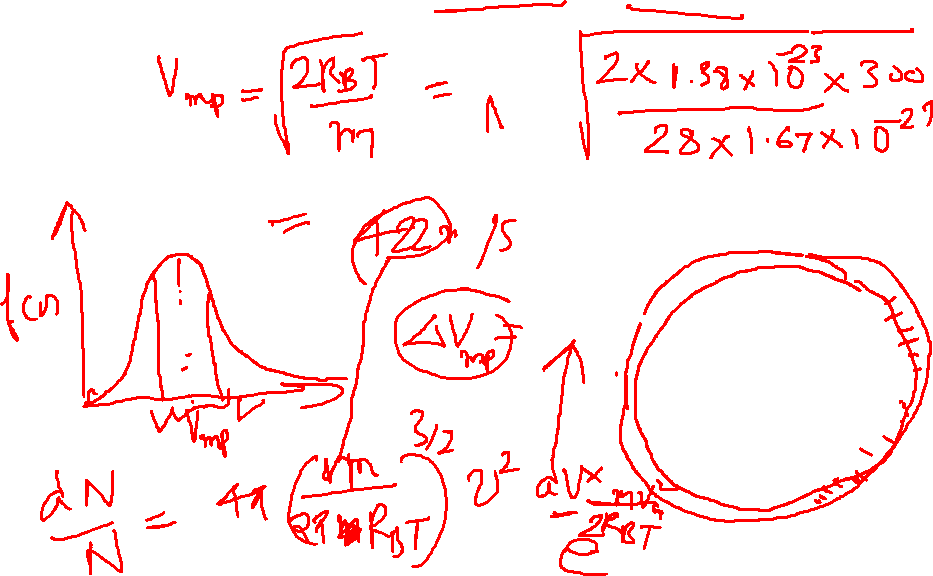 V_mp = √(2k_BT / m) = √(2 × 1.38 × 10^-23 × 300 / 28 × 1.67 × 10^-27)
= 422 m/s
f(v)
ΔV_mp =
V_mp
dN/N = 4π (m / 2π k_BT)^3/2 v^2 dv × e^-mv^2/2k_BT